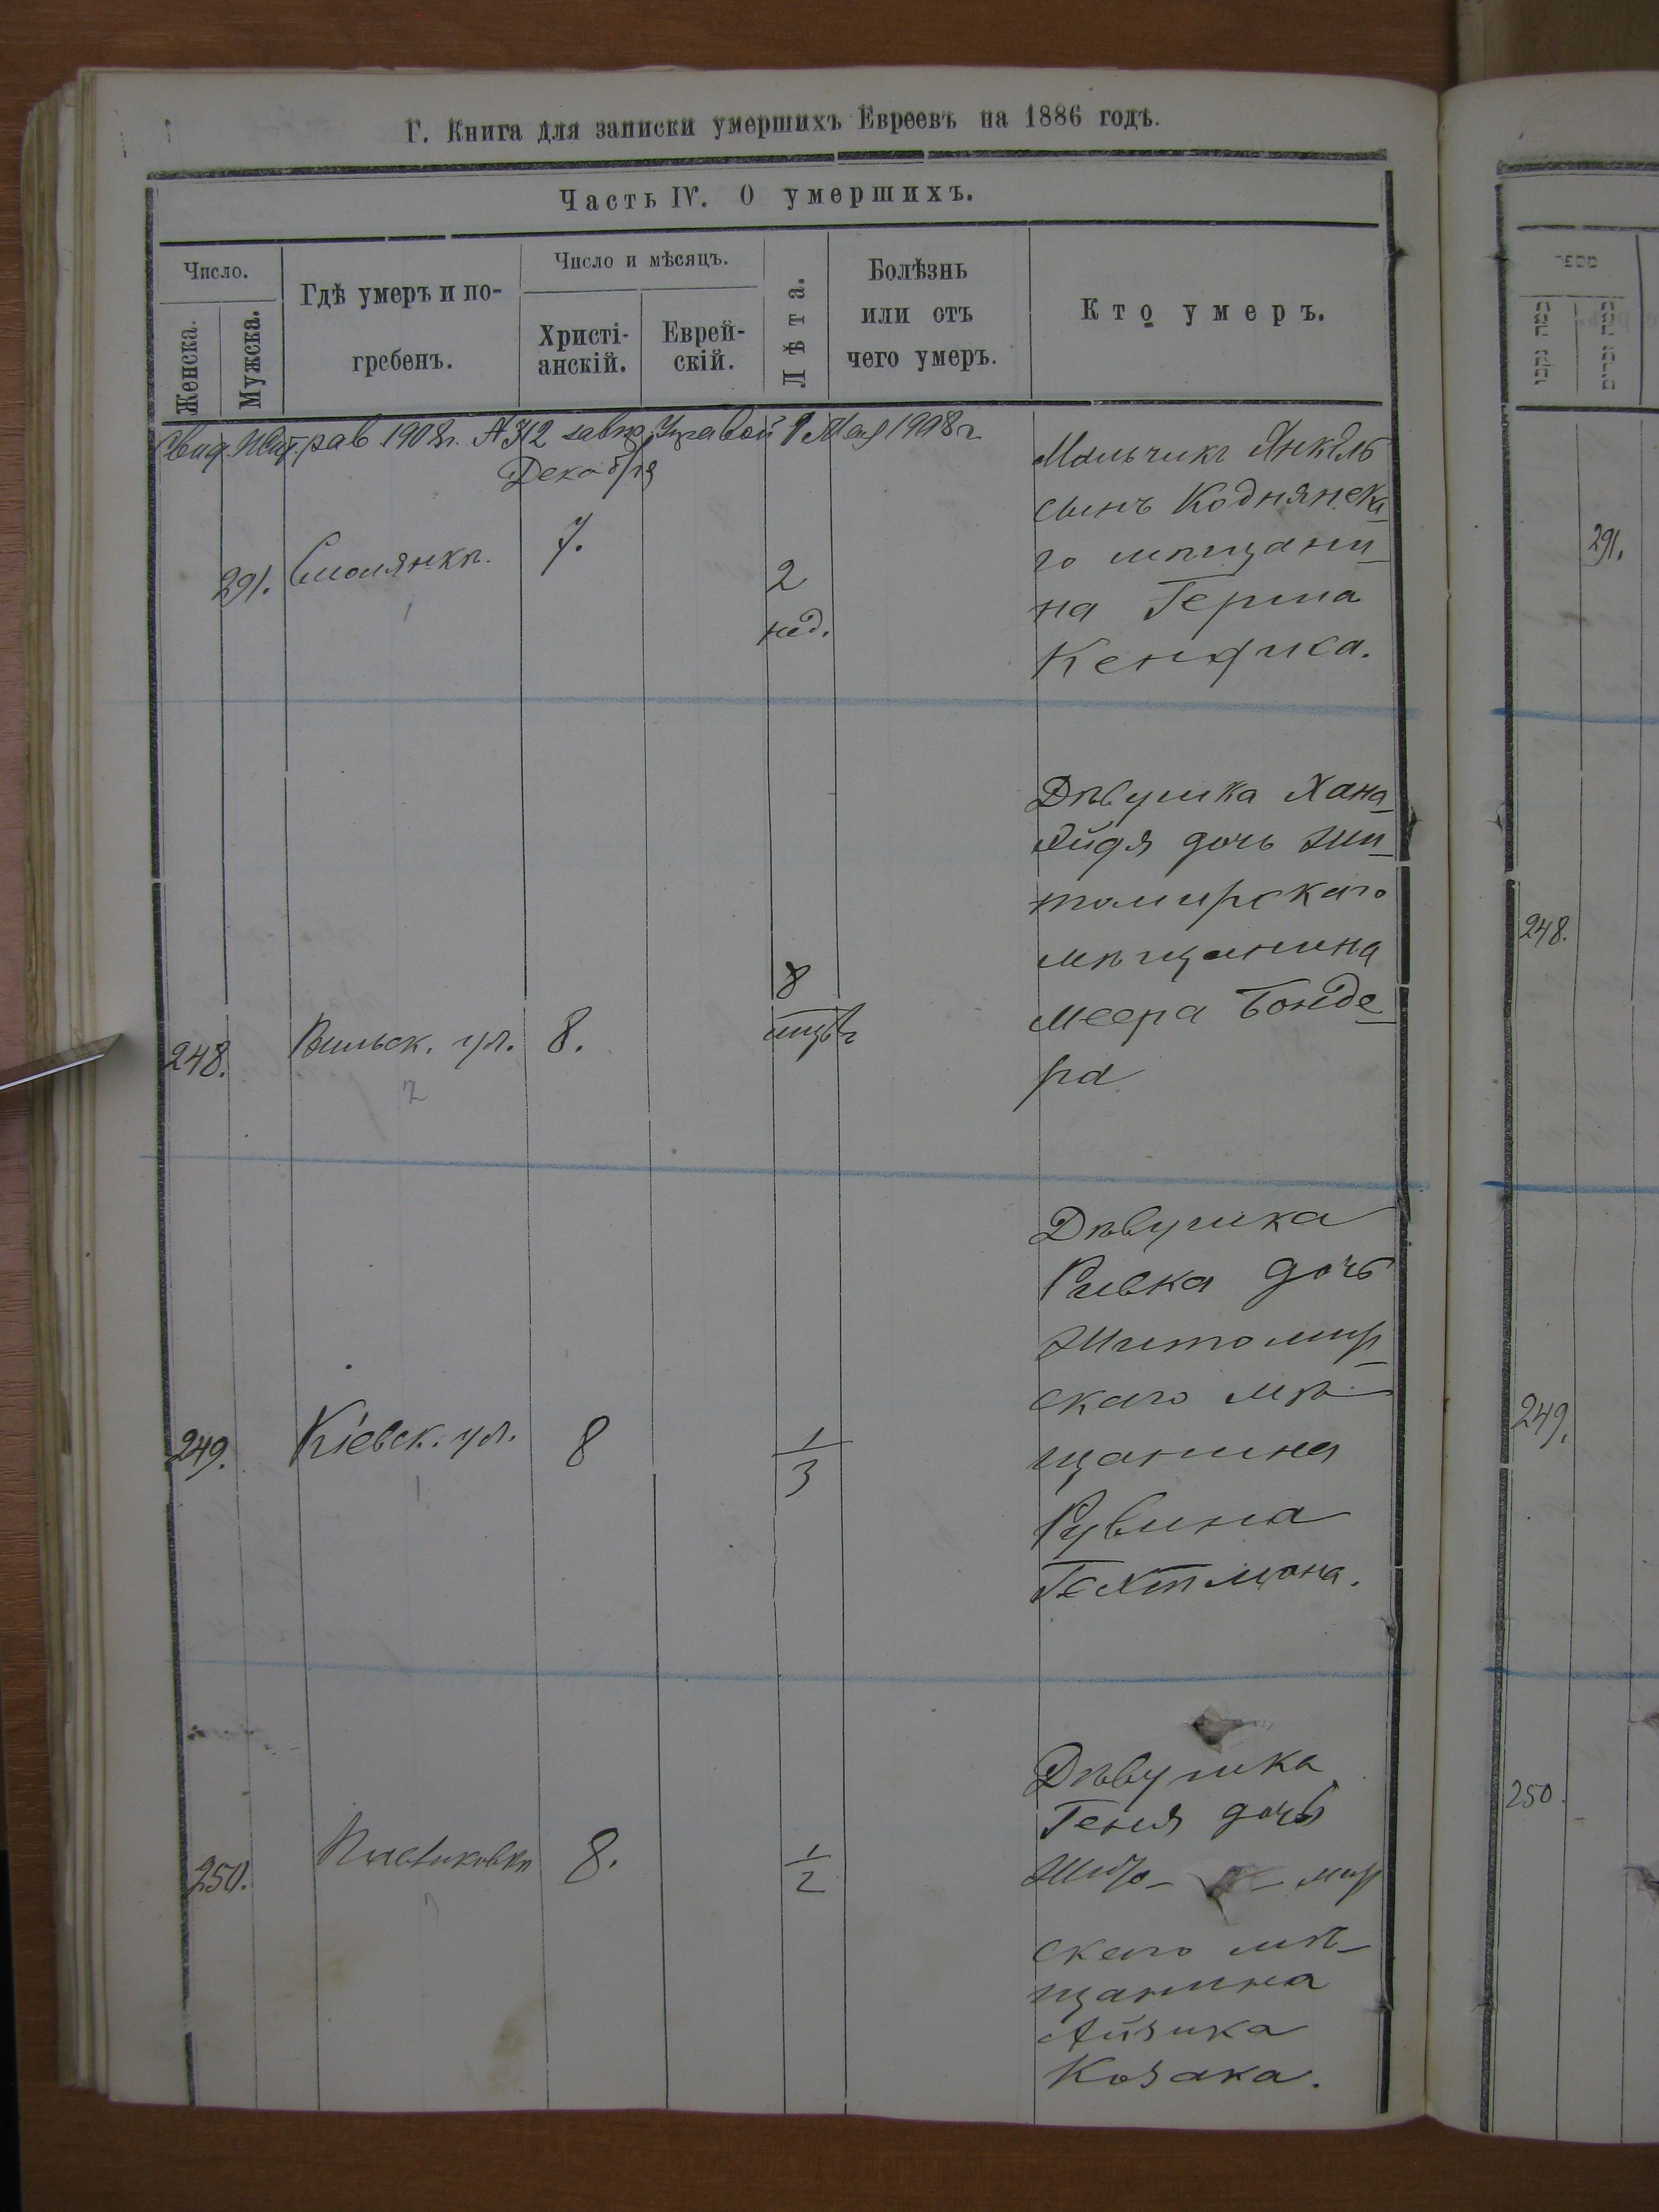 Г. Книга для записки умершихъ Евреевъ на 1886 годъ.
Часть IV. О умершихъ.
Число.
Женска.
Мужска.
Гдѣ умеръ и по-
гребенъ.
Число и мѣсяцъ.
Христі-
анскій.
Еврей-
скій.
Лѣта.
Болѣзнь
или отъ
чего умеръ.
Кто умеръ.
рав 1908г. 312 Управой 9 Мая 1908 г
Декабря
291.
Смолянка.
7.
2
нед.
Мальчикъ Янкель
сынъ Коднянска
го мѣщани
на Герша
1
248.
Вильск. ул.
8.
8
мцѣв
Дѣвушка Хана
Айдя дочь Жи
томирскаго
мѣщанина
Меера Бонде
ра
2
249.
Кіевск. ул.
8
1/3
Дѣвушка
Ривка дочь
Житомир
скаго мѣ
щанина
Рувина
Гехтмана.
1
250.
8.
1/2
Дѣвушка
Геня дочь
Жито- - мир
скаго мѣ-
щанина
Айзика
Козака.
מספר
291.
248.
249.
250.